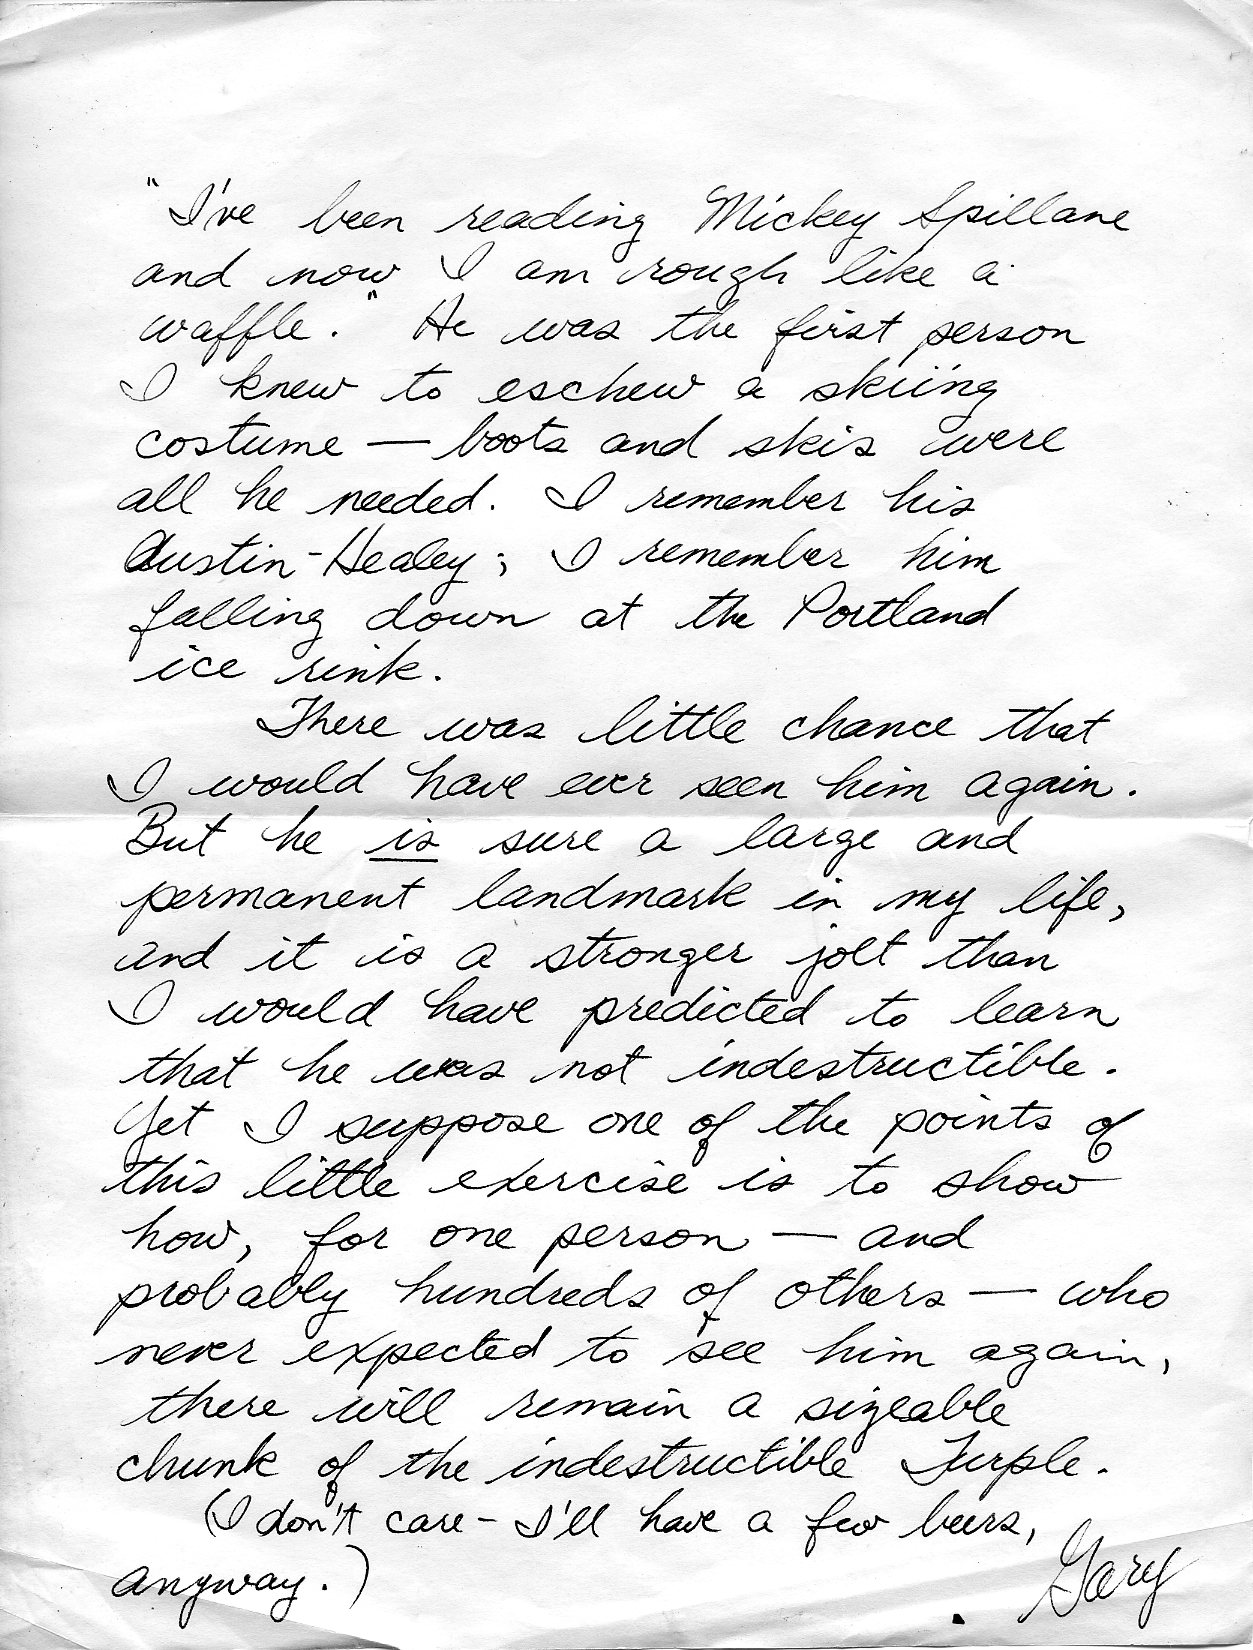 "I've been reading Mickey Spillane
and now I am rough like a
waffle." He was the first person
I knew to eschew a skiing
costume — boots and skis were
all he needed. I remember his
Austin-Healey; I remember him
falling down at the Portland
ice rink.
There was little chance that
I would have ever seen him again.
But he is sure a large and
permanent landmark in my life,
and it is a stronger jolt than
I would have predicted to learn
that he was not indestructible.
Yet I suppose one of the points of
this little exercise is to show
how, for one person — and
probably hundreds of others — who
never expected to see him again,
there will remain a sizeable
chunk of the indestructible Turple.
(I don't care - I'll have a few beers,
anyway.)
Gary